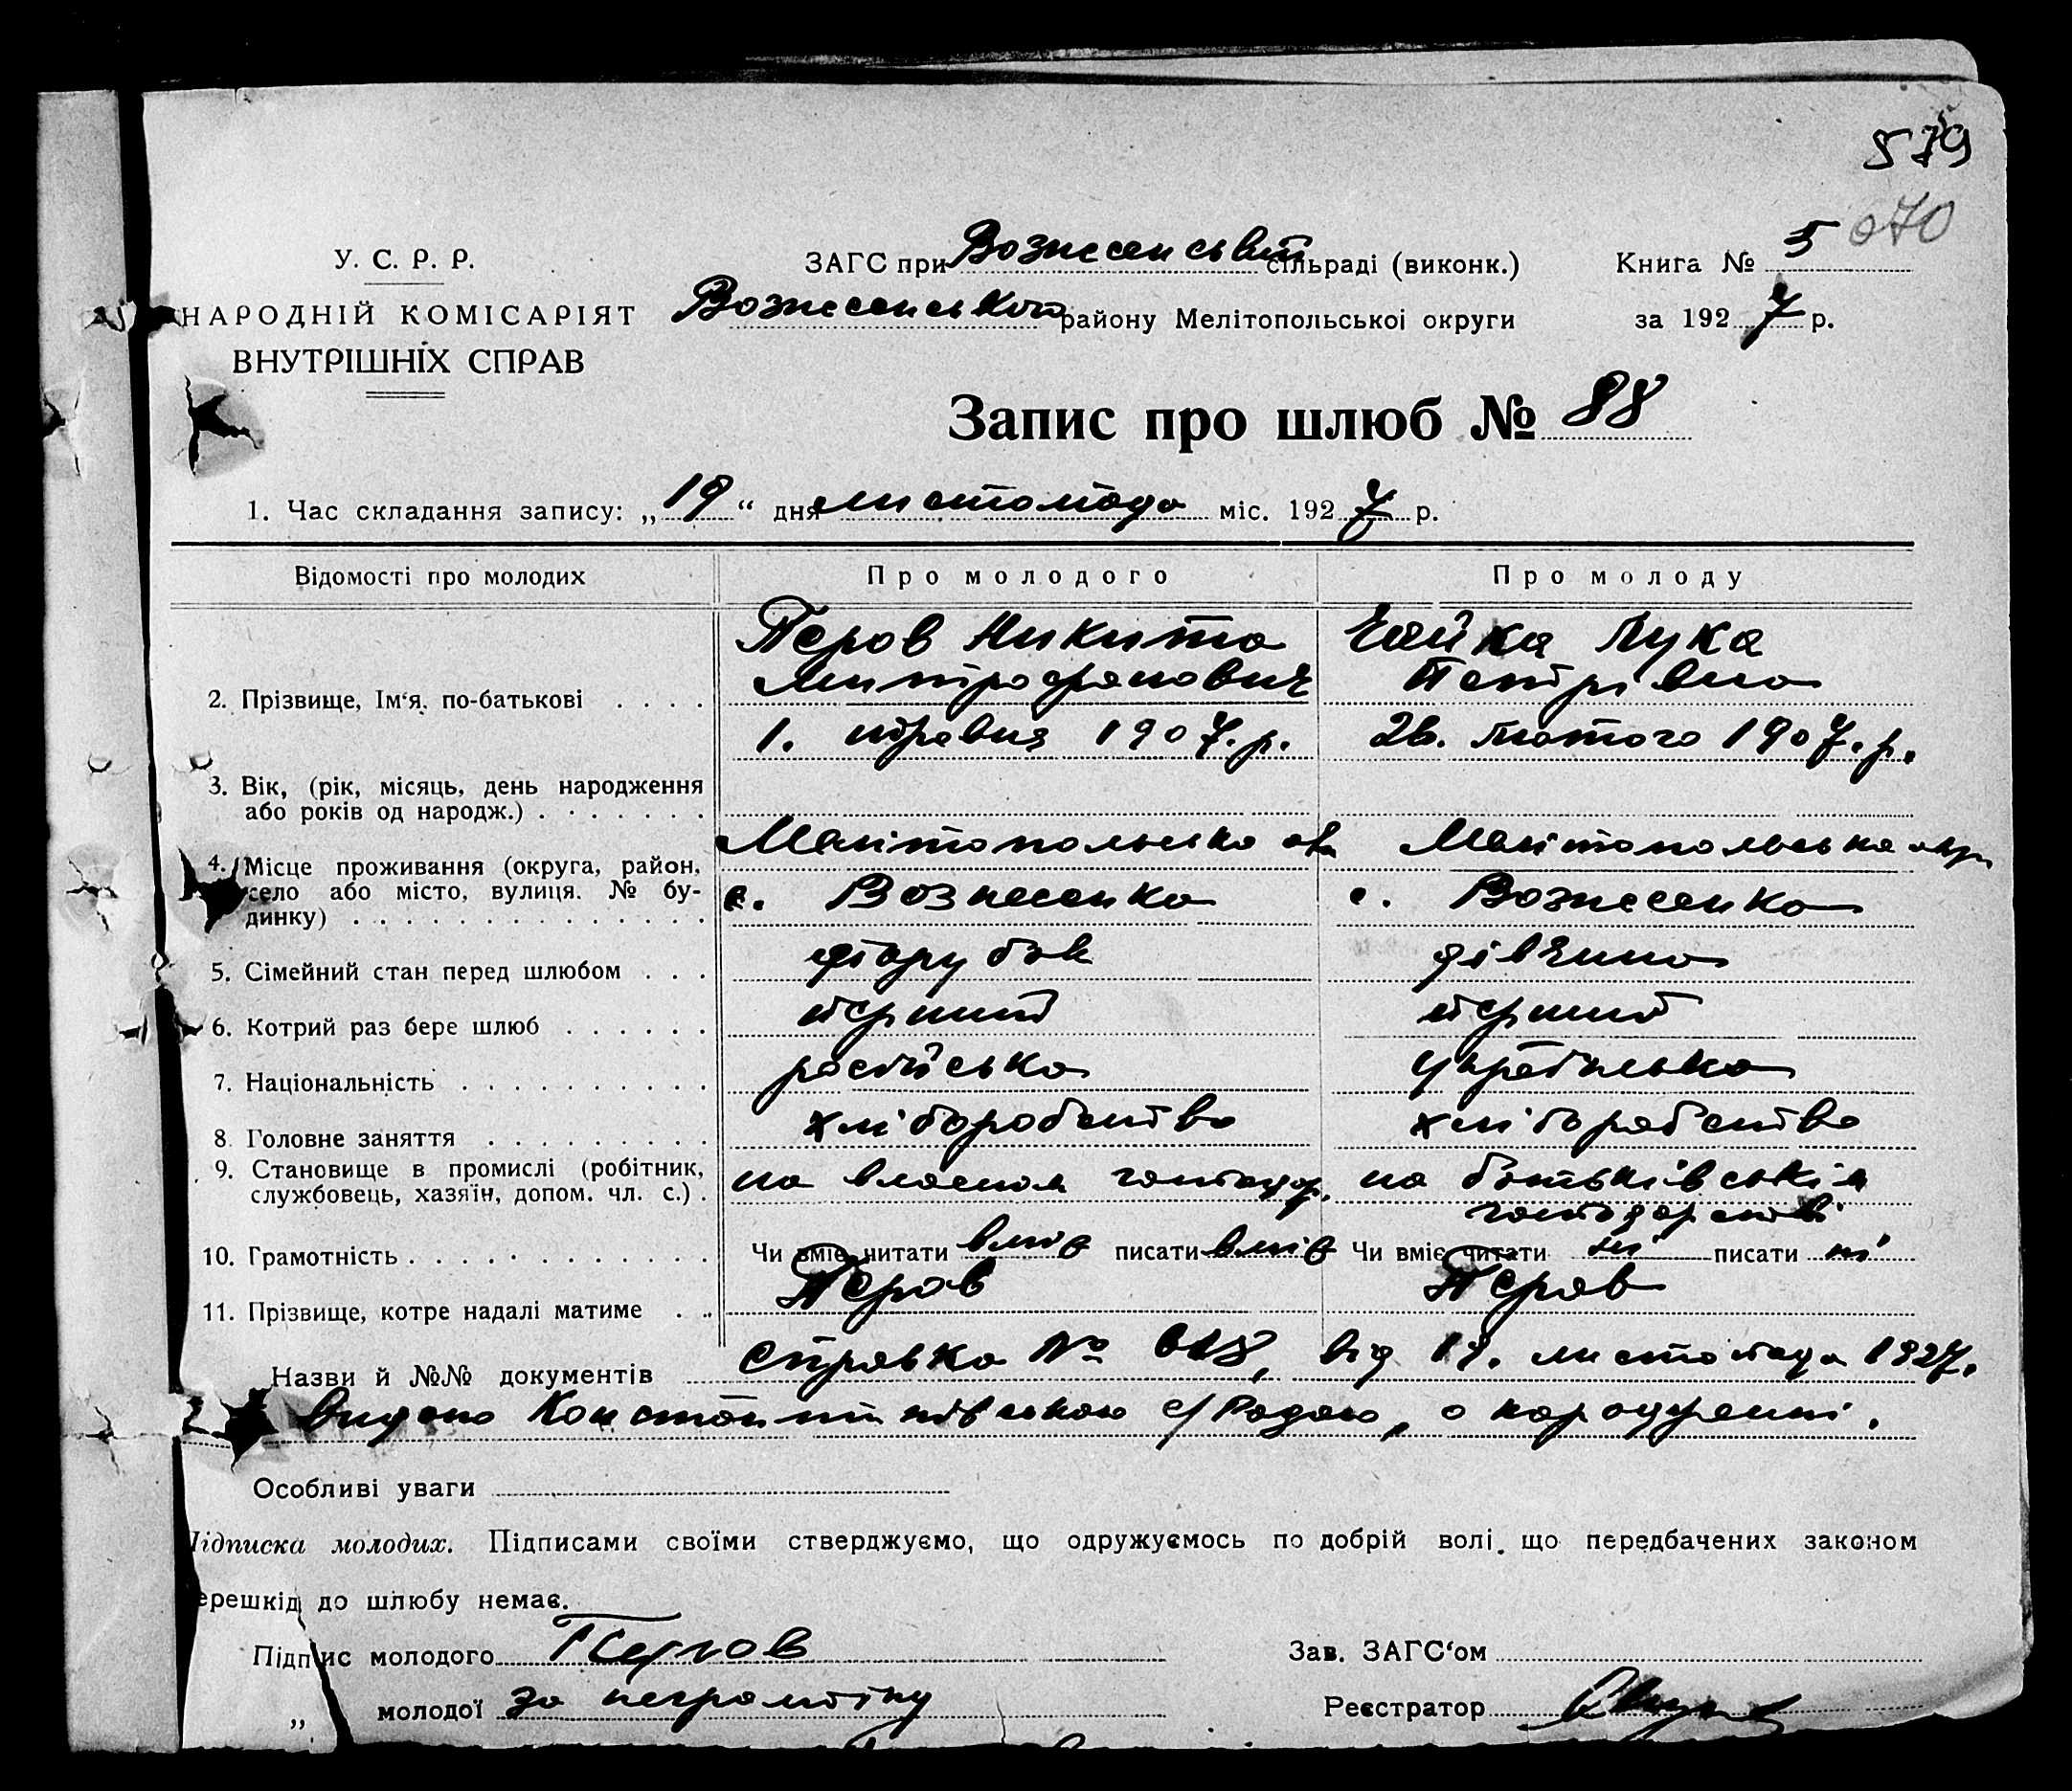 579
070
У. С. Р. Р.
НАРОДНІЙ КОМІСАРІЯТ
ВНУТРІШНІХ СПРАВ
ЗАГС при Вознесенській сільраді (виконк.)
Вознесенського району Мелітопольської округи
Книга № 5
за 1927 р.
Запис про шлюб № 88
1. Час складання запису: „19“ дня листопада міс. 1927 р.
Відомості про молодих Про молодого Про молоду
2. Прізвище, Ім‘я, по-батькові . . . .
Перов Никита
Митрофанович
Чайка Лука
Петрівна
3. Вік, (рік, місяць, день народження
або років од народж.) . . . . . . .
1. травня 1907. р.
26. лютого 1907. р.
4. Місце проживання (округа, район,
село або місто, вулиця. № бу-
динку) . . . . . . . . . . . . . .
Мелітопольська
с. Вознесенка
Мелітопольська окру
с. Вознесенка
5. Сімейний стан перед шлюбом . . . парубок дівчина
6. Котрий раз бере шлюб . . . . . . перший перший
7. Національність . . . . . . . . . російська українська
8. Головне заняття . . . . . . . . . хліборобство хліборобство
9. Становище в промислі (робітник,
службовець, хазяїн, допом. чл. с.) .
на власном господар.
на батьківськім
господарстві
10. Грамотність . . . . . . . . . . . Чи вміє читати вміє писати вміє Чи вміє читати ні писати ні
11. Прізвище, котре надалі матиме . . Перов Перов
Назви й №№ документів справка № 618, від 19. листопада 1927.
видано Константинівською с/Радою, о народженні.
Особливі уваги
Підписка молодих. Підписами своїми стверджуємо, що одружуємось по добрій волі, що передбачених законом
ерешкід до шлюбу немає.
Підпис молодого Перов
Зав. ЗАГС‘ом
„ молодої за неграмотну
Реєстратор